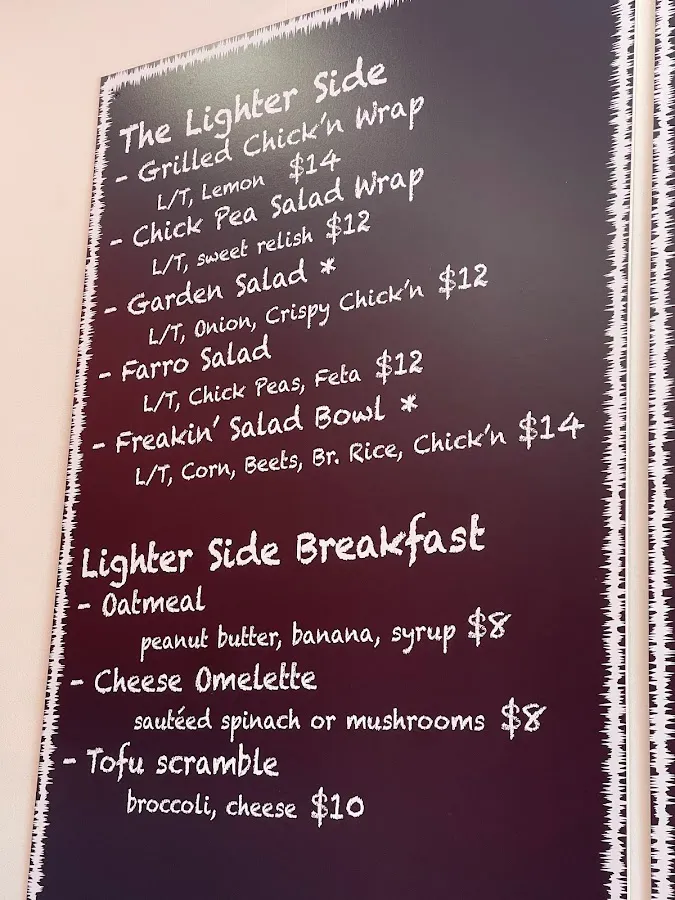 The Lighter Side
- Grilled Chick'n Wrap
L/T, Lemon $14
- Chick Pea Salad Wrap
L/T, sweet relish $12
- Garden Salad *
L/T, Onion, Crispy Chick'n $12
- Farro Salad
L/T, Chick Peas, Feta $12
- Freakin' Salad Bowl *
L/T, Corn, Beets, Br. Rice, Chick'n $14
Lighter Side Breakfast
- Oatmeal
peanut butter, banana, syrup $8
- Cheese Omelette
sautéed spinach or mushrooms $8
- Tofu scramble
broccoli, cheese $10